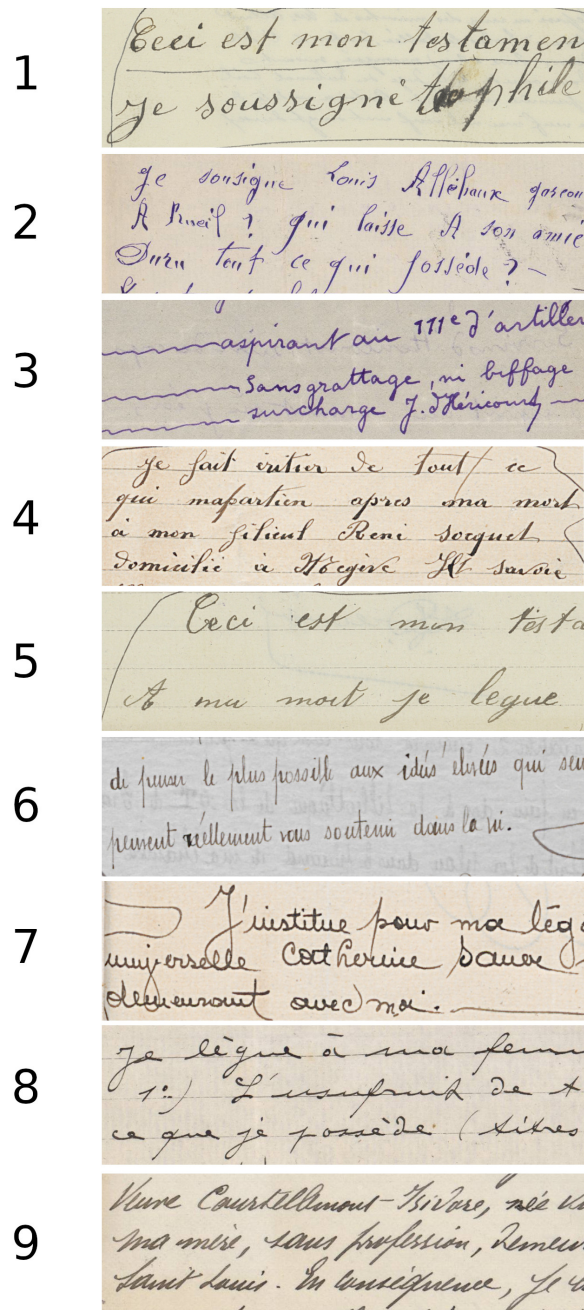 1
Ceci est mon testamen
je soussigné phile
2
Je sousigne Louis garcon
A Rueil ? qui laisse A son amie
Duru tout ce qui possède ? —
3
aspirant au 111e d'artiller
Sans grattage, ni biffage
surcharge J. d'Héricourt
4
Je fait éritier de tout ce
qui mapartien apres ma mort
à mon filieul René socquet
domicilié à Megève Hte savoie
5
Ceci est mon testa
A ma mort je legue
6
de penser le plus possible aux idées élevées qui seu
peuvent réellement vous soutenir dans la vie.
7
J'institue pour ma lég
universelle Catherine
demeurant avec moi.
8
Je lègue à ma femm
1º) L'usufruit de t
ce que je possède (titres
9
Veuve Courtellemont-Isidore, née
ma mère, sans profession, demeu
Saint Louis. En conséquence, je